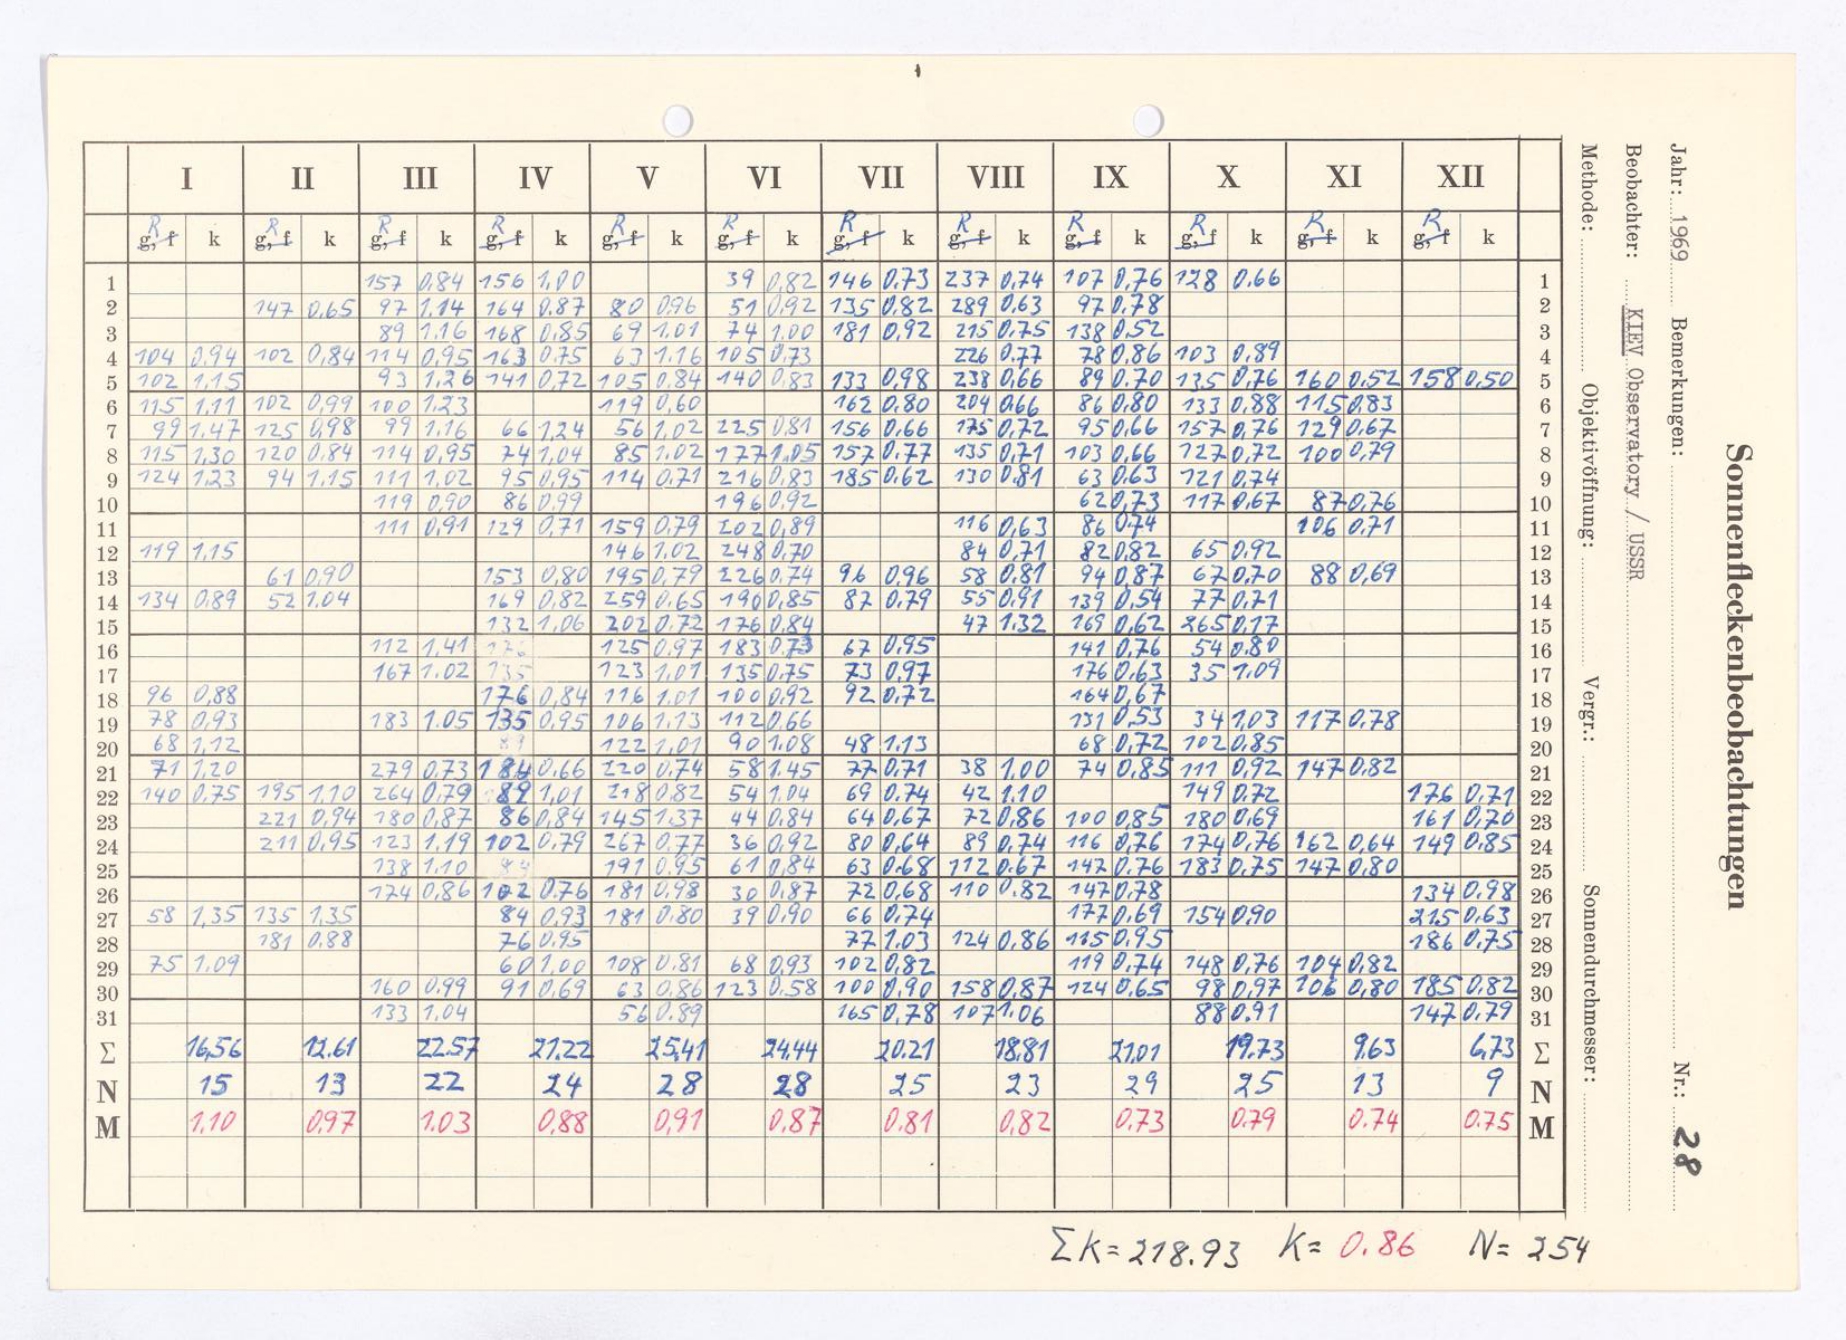 Sonnenfleckenbeobachtungen
Jahr: 1969 Bemerkungen: Nr.: 28
Beobachter: KIEV Observatory / USSR
Methode: Objektivöffnung: Vergr.: Sonnendurchmesser:
I II III IV V VI VII VIII IX X XI XII
R R R R R R R R R R R R
g, f k g, f k g, f k g, f k g, f k g, f k g, f k g, f k g, f k g, f k g, f k g, f k
1 157 0,84 156 1,00 39 0,82 146 0,73 237 0,74 107 0,76 128 0,66 1
2 147 0,65 97 1.14 164 0,87 80 0,96 51 0,92 135 0,82 289 0,63 97 0,78 2
3 89 1.16 168 0,85 69 1.01 74 1.00 181 0,92 215 0,75 138 0,52 3
4 104 0,94 102 0,84 114 0,95 163 0,75 63 1.16 105 0,73 226 0,77 78 0,86 103 0,89 4
5 102 1,15 93 1,26 141 0,72 105 0,84 140 0,83 133 0,98 238 0,66 89 0,70 135 0,76 160 0,52 158 0,50 5
6 115 1,11 102 0,99 100 1.23 119 0,60 162 0,80 204 0,66 86 0,80 133 0,88 115 0,83 6
7 99 1.47 125 0,98 99 1.16 66 1,24 56 1,02 225 0,81 156 0,66 175 0,72 95 0,66 157 0,76 129 0,67 7
8 115 1,30 120 0,84 114 0,95 74 1,04 85 1.02 177 1,05 157 0,77 135 0,71 103 0,66 127 0,72 100 0,79 8
9 124 1.23 94 1.15 111 1,02 95 0,95 114 0,71 216 0,83 185 0,62 130 0,81 63 0,63 121 0,74 9
10 119 0,90 86 0,99 196 0,92 62 0,73 117 0,67 87 0,76 10
11 111 0,91 129 0,71 159 0,79 202 0,89 116 0,63 86 0,74 106 0,71 11
12 119 1,15 146 1.02 248 0,70 84 0,71 82 0,82 65 0,92 12
13 61 0,90 153 0,80 195 0,79 226 0,74 96 0,96 58 0,81 94 0,87 67 0,70 88 0,69 13
14 134 0,89 52 1.04 169 0,82 259 0,65 190 0,85 87 0,79 55 0,91 139 0,54 77 0,71 14
15 132 1,06 202 0,72 176 0,84 47 1.32 169 0,62 265 0,17 15
16 112 1,41 176 125 0,97 183 0,73 67 0,95 141 0,76 54 0,80 16
17 167 1.02 135 123 1,01 135 0,75 73 0,97 176 0,63 35 1.09 17
18 96 0,88 176 0,84 116 1.01 100 0,92 92 0,72 164 0,67 18
19 78 0,93 183 1.05 135 0,95 106 1.13 112 0,66 131 0,53 34 1,03 117 0,78 19
20 68 1,12 89 122 1,01 90 1.08 48 1.13 68 0,72 102 0,85 20
21 71 1,20 279 0,73 184 0,66 220 0,74 58 1.45 77 0,71 38 1,00 74 0,85 111 0,92 147 0,82 21
22 140 0,75 195 1,10 264 0,79 89 1,01 218 0,82 54 1,04 69 0,74 42 1.10 149 0,72 176 0,71 22
23 221 0,94 180 0,87 86 0,84 145 1.37 44 0,84 64 0,67 72 0,86 100 0,85 180 0,69 161 0,70 23
24 211 0,95 123 1,19 102 0,79 267 0,77 36 0,92 80 0,64 89 0,74 116 0,76 174 0,76 162 0,64 149 0,85 24
25 138 1.10 84 191 0,95 61 0,84 63 0,68 112 0,67 147 0,76 183 0,75 147 0,80 25
26 174 0,86 102 0,76 181 0,98 30 0,87 72 0,68 110 0,82 147 0,78 134 0,98 26
27 58 1,35 135 1,35 84 0,93 181 0,80 39 0,90 66 0,74 177 0,69 154 0,90 215 0,63 27
28 181 0,88 76 0,95 77 1.03 124 0,86 115 0,95 186 0,75 28
29 75 1,09 60 1,00 108 0,81 68 0,93 102 0,82 119 0,74 148 0,76 104 0,82 29
30 160 0,99 91 0,69 63 0,86 123 0,58 100 0,90 158 0,87 124 0,65 98 0,97 106 0,80 185 0,82 30
31 133 1,04 56 0,89 165 0,78 107 1.06 88 0,91 147 0,79 31
Σ 16,56 12.61 22.57 21,22 25,41 24,44 20.21 18,81 21,01 19.73 9,63 6,73 Σ
N 15 13 22 24 28 28 25 23 29 25 13 9 N
M 1,10 0,97 1.03 0,88 0,91 0,87 0.81 0,82 0.73 0.79 0.74 0.75 M
ΣK = 218.93 K = 0.86 N = 254